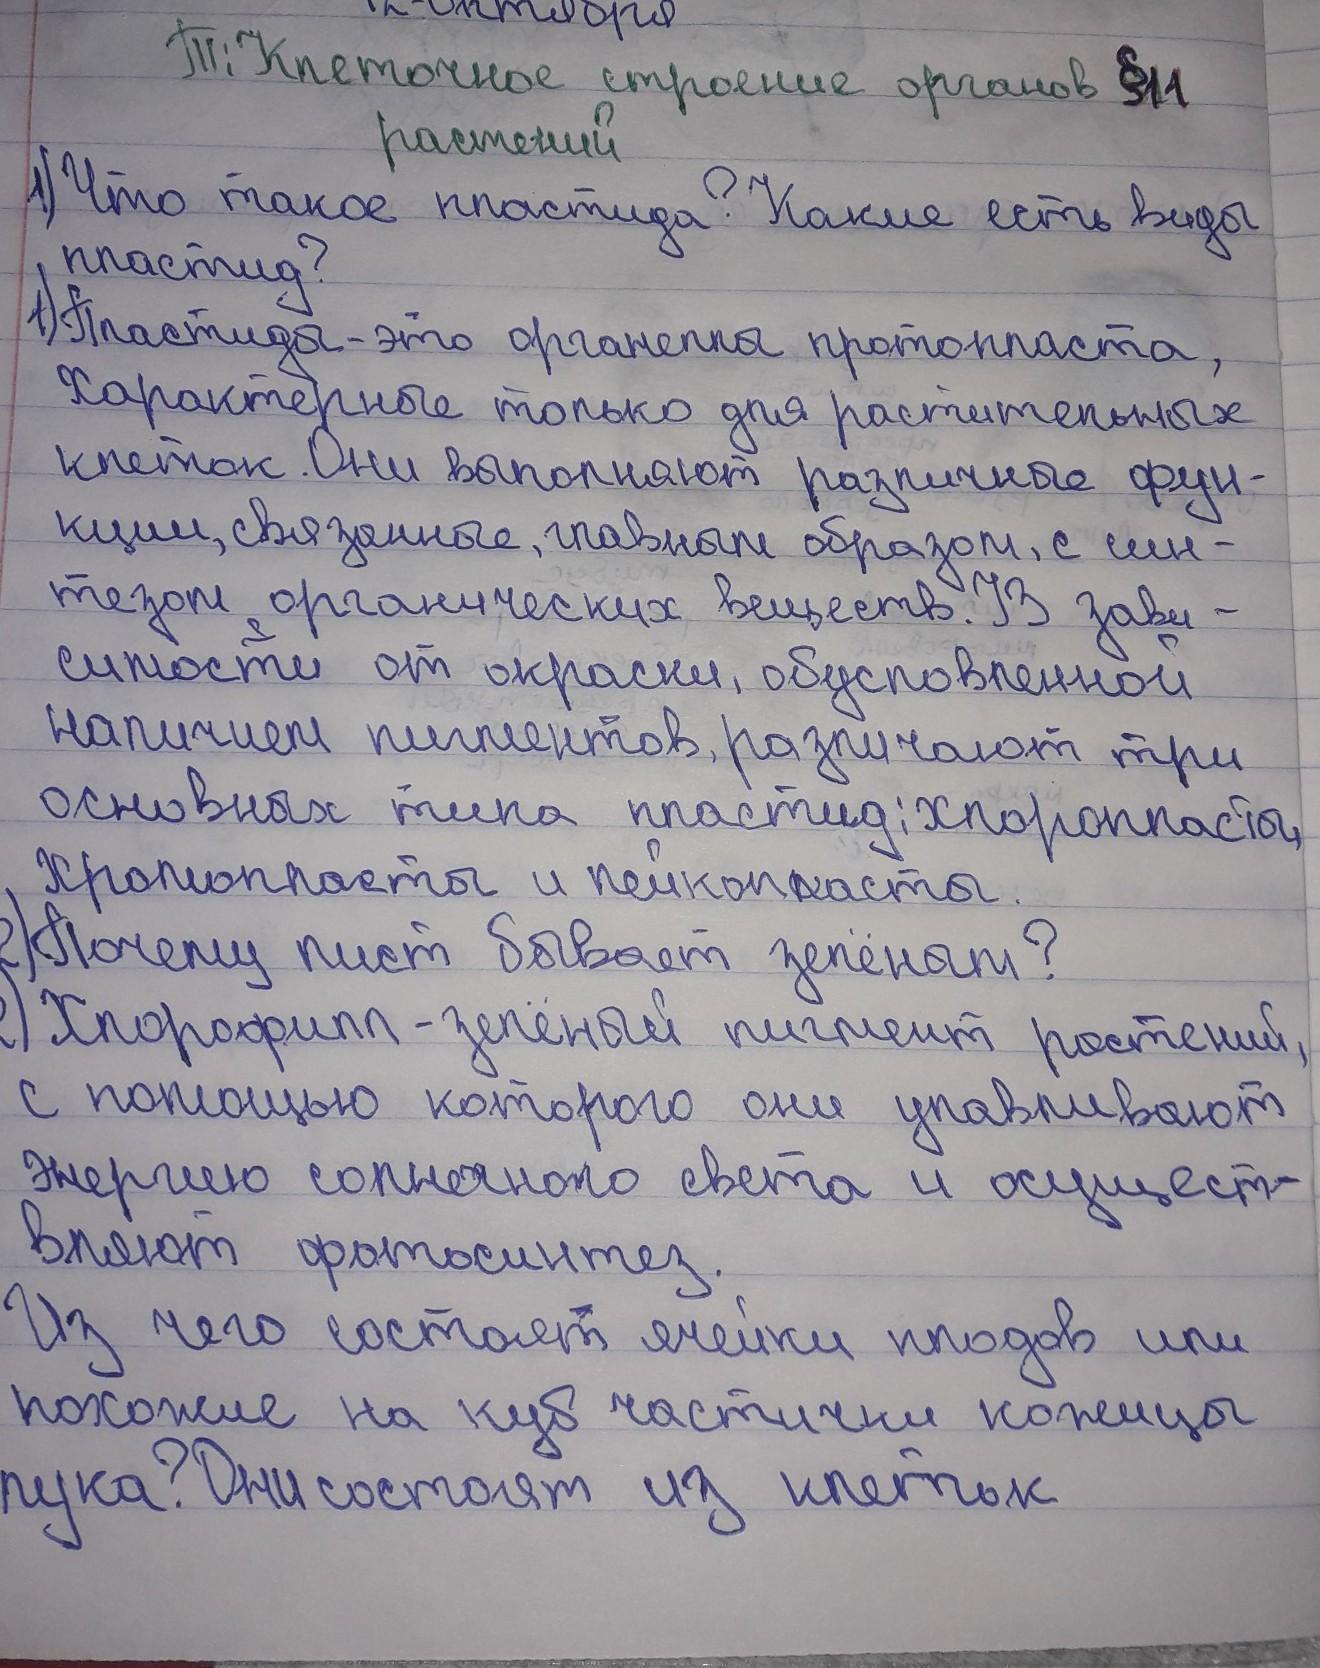 12 октября
Т: Клеточное строение органов §11
растений
1) Что такое пластида? Какие есть виды
пластид?
1) Пластиды - это органеллы протопласта,
характерные только для растительных
клеток. Они выполняют различные фун-
кции, связанные, главным образом, с син-
тезом органических веществ. В зави-
симости от окраски, обусловленной
наличием пигментов, различают три
основных типа пластид: хлоропласты,
хромопласты и лейкопласты.
2) Почему лист бывает зелёным?
2) Хлорофилл - зелёный пигмент растений,
с помощью которого они улавливают
энергию солнечного света и осущест-
вляют фотосинтез.
Из чего состоят ячейки плодов или
похожие на куб частички кожицы
лука? Они состоят из клеток